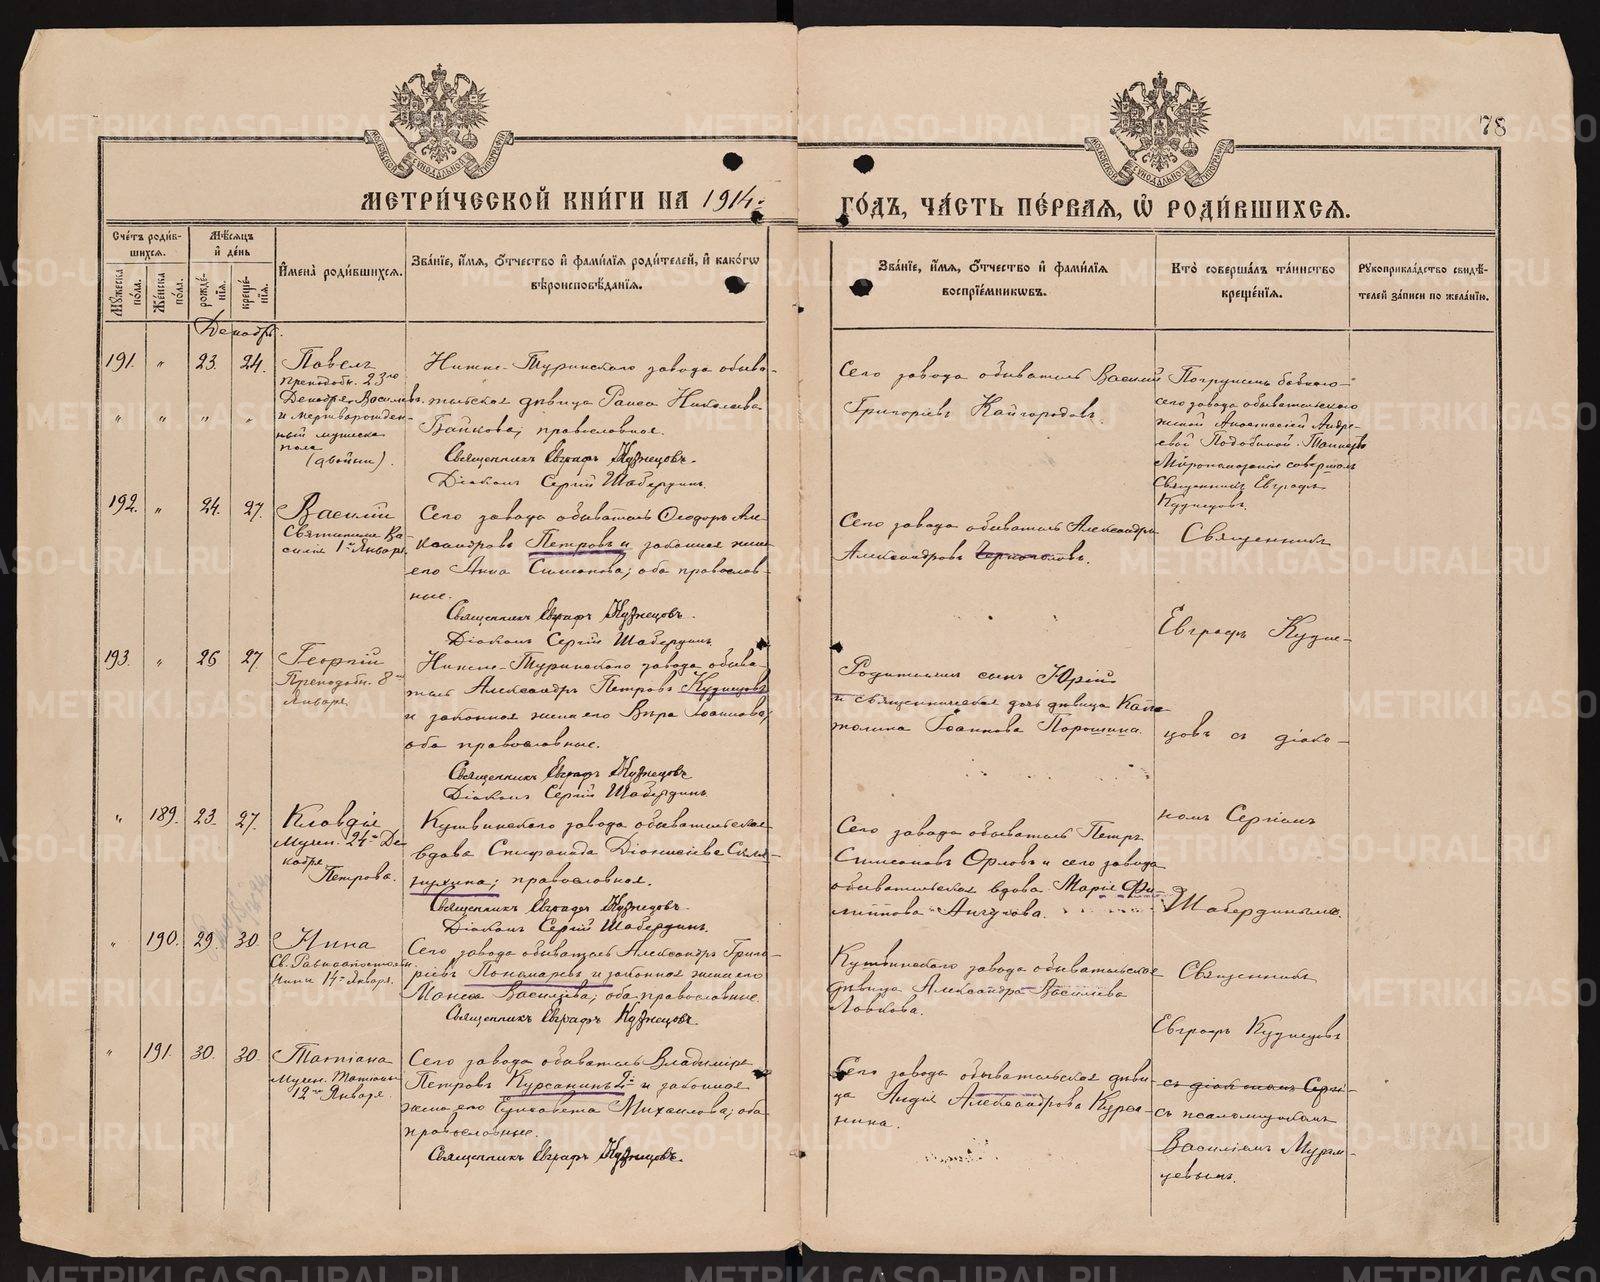 78
МЕТРИ́ЧЕСКОЙ КНИ́ГИ НА 1914 ГО́ДЪ, ЧА́СТЬ ПЕ́РВАЯ, Ѽ РОДИ́ВШИХСЯ.
Сче́тъ роди́в-
шихся.
Мѣ́сяцъ
и҆ де́нь
И҆мена̀ роди́вшихся.
Зва́нїе, и҆́мя, ѻ҆́тчество и҆ фами́лїя роди́телей, и҆ како́гѡ
вѣроисповѣ́данїя.
Му́жеска
пола.
Же́нска
пола.
рожде́-
нїя.
креще́-
нїя.
Зва́нїе, и҆́мя, ѻ҆́тчество и҆ фами́лїя
воспрїе́мникѡвъ.
Кто̀ соверша́лъ та́инство
креще́нїя.
Рꙋкоприкла́дство свидѣ́-
телей за́писи по жела́нїю.
Декабрь.
191. " 23. 24.
Павелъ
преподобн. 23го
Декабря, Васильевъ.
и мертворожден-
ный мужеска
пола
(двойни).
Нижне-Туринскаго завода обыва-
тельская дѣвица Раиса Николаева
Байкова; православная.
Священникъ Евграфъ Кузнецовъ.
Діаконъ Сергій Шабердинъ.
Сего завода обыватель Василій
Григорьевъ Кайгородовъ.
Погруженъ бабкою-
сего завода обывательскою
женой Анастасіей Андре-
евой Подобиной. Таинство
Мѵропомазанія совершалъ
Священникъ Евграфъ
Кузнецовъ.
192. " 24. 27.
Василій
Святителя Ва-
силія 1го Января.
Сего завода обыватель Ѳеодоръ Але-
ксандровъ Петровъ и законная жена
его Анна Симонова; оба православ-
ные.
Священникъ Евграфъ Кузнецовъ.
Діаконъ Сергій Шабердинъ.
Сего завода обыватель Александръ
Александровъ Черноголовъ.
Священникъ
Евграфъ Кузне-
193. " 26 27
Георгій
Преподобн. 8го
Января.
Нижне-Туринскаго завода обыва-
тель Александръ Петровъ Кузнецовъ
и законная жена его Вѣра Іоаннова;
оба православные.
Священникъ Евграфъ Кузнецовъ
Діаконъ Сергій Шабердинъ.
Родителей сынъ Юрій
и священническая дочь дѣвица Капи-
толина Іоаннова Порошина.
цовъ съ діако-
" 189. 23. 27.
Клавдія
Мучен. 24го Де-
кабря
Петрова.
Кушвинскаго завода обывательская
вдова Спиранида Діонисіева
православная.
Священникъ Евграфъ Кузнецовъ.
Діаконъ Сергій Шабердинъ.
Сего завода обыватель Петръ
Симеоновъ Орловъ и сего завода
обывательская вдова Марія Фи-
липпова
номъ Сергіемъ
Шабердинымъ.
" 190. 29. 30.
Нина
Св. Равноапостольн.
Нины 14го Января.
Сего завода обыватель Александръ Григо-
рьевъ Пономаревъ и законная жена его
Васильева; оба православные.
Священникъ Евграфъ Кузнецовъ.
Кушвинскаго завода обывательская
дѣвица Александра Васильева
Ловкова.
Священникъ
Евграфъ Кузнецовъ
" 191. 30. 30.
Татіана
Мучен. Татіаны
12го Января.
Сего завода обыватель Владиміръ
Петровъ Курсанинъ 2й и законная
жена его Елисавета Михаилова; оба
православные.
Священникъ Евграфъ Кузнецовъ.
Сего завода обывательская дѣви-
ца Лидія Александрова Курса-
нина.
съ діакономъ Сергі-
съ псаломщикомъ
Василіемъ Мурзи-
цевымъ.
METRIKI.GASO-URAL.RU